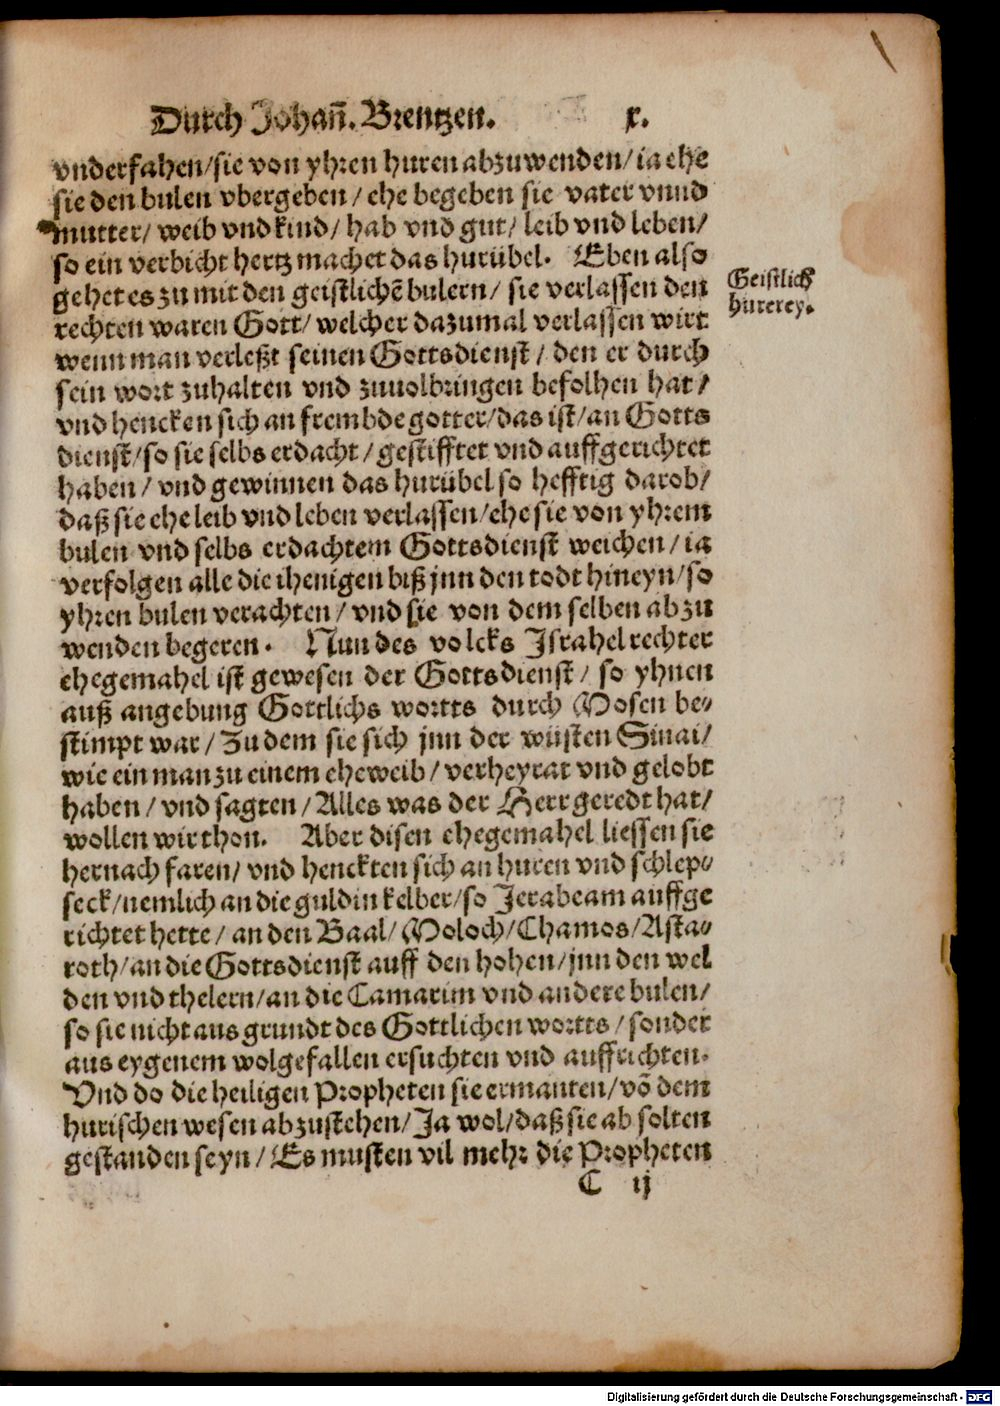 Durch Johañ. Brentzen. x.
vnderfahen/sie von yhren huren abzuwenden/ia ehe
sie den bulen vbergeben/ehe begeben sie vater vnnd
mutter/weib vnd kind/hab vnd gut/leib vnd leben/
so ein verbicht hertz machet das hurübel. Eben also
gehet es zu mit den geistlichē bulern/sie verlassen den
rechten waren Gott/welcher dazumal verlassen wirt
wenn man verleßt seinen Gottsdienst/den er durch
sein wort zuhalten vnd zuuolbringen befolhen hat/
vnd hencken sich an frembde gotter/das ist/an Gotts
dienst/so sie selbs erdacht/gestifftet vnd auffgerichtet
haben/vnd gewinnen das hurübel so hefftig darob/
daß sie ehe leib vnd leben verlassen/ehe sie von yhrem
bulen vnd selbs erdachtem Gottsdienst weichen/ia
verfolgen alle die ihenigen biß jnn den todt hineyn/so
yhren bulen verachten/vnd sie von dem selben abzu
wenden begeren. Nun des volcks Israhel rechter
ehegemahel ist gewesen der Gottsdienst/so yhnen
auß angebung Gottlichs wortts durch Mosen be-
stimpt war/Zu dem sie sich jnn der wüsten Sinai/
wie ein man zu einem eheweib/verheyrat vnd gelobt
haben/vnd sagten/Alles was der Herr geredt hat/
wollen wir thon. Aber disen ehegemahel liessen sie
hernach faren/vnd henckten sich an huren vnd schlep-
seck/nemlich an die guldin kelber/so Jerabeam auffge
richtet hette/an den Baal/Moloch/Chamos/Asta-
roth/an die Gottsdienst auff den hohen/jnn den wel
den vnd thelern/an die Camarim vnd andere bulen/
so sie nicht aus grundt des Gottlichen wortts/sonder
aus eygenem wolgefallen ersuchten vnd auffrichten.
Vnd do die heiligen Propheten sie ermanten/vō dem
hurischen wesen abzustehen/Ja wol/daß sie ab solten
gestanden seyn/Es musten vil mehr die Propheten
C ij
Geistlich
hurerey.
Digitalisierung gefördert durch die Deutsche Forschungsgemeinschaft - DFG